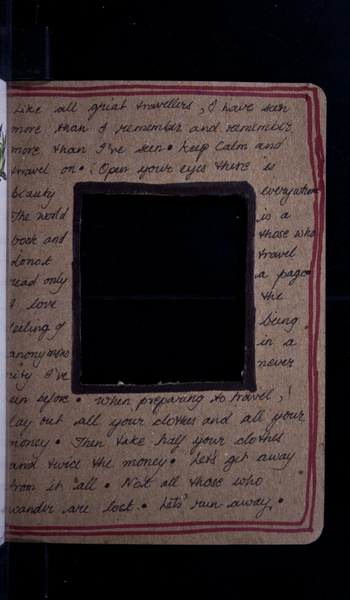 Like all griat travellers, I have seen
more than I remember and remember
more than I've seen. Keep Calm and
travel on. Open your eyes there is
beauty everywhere
The world is a
book and those who
donot travel
read only a page
I love the
feeling of being
anonymous in a
city I've never
een before. When preparing to travel,
lay out all your clothes and all your
money. Then take half your clothes
and twice the money. Let's get away
from it all. Not all those who
wander are lost. Lets' run away.